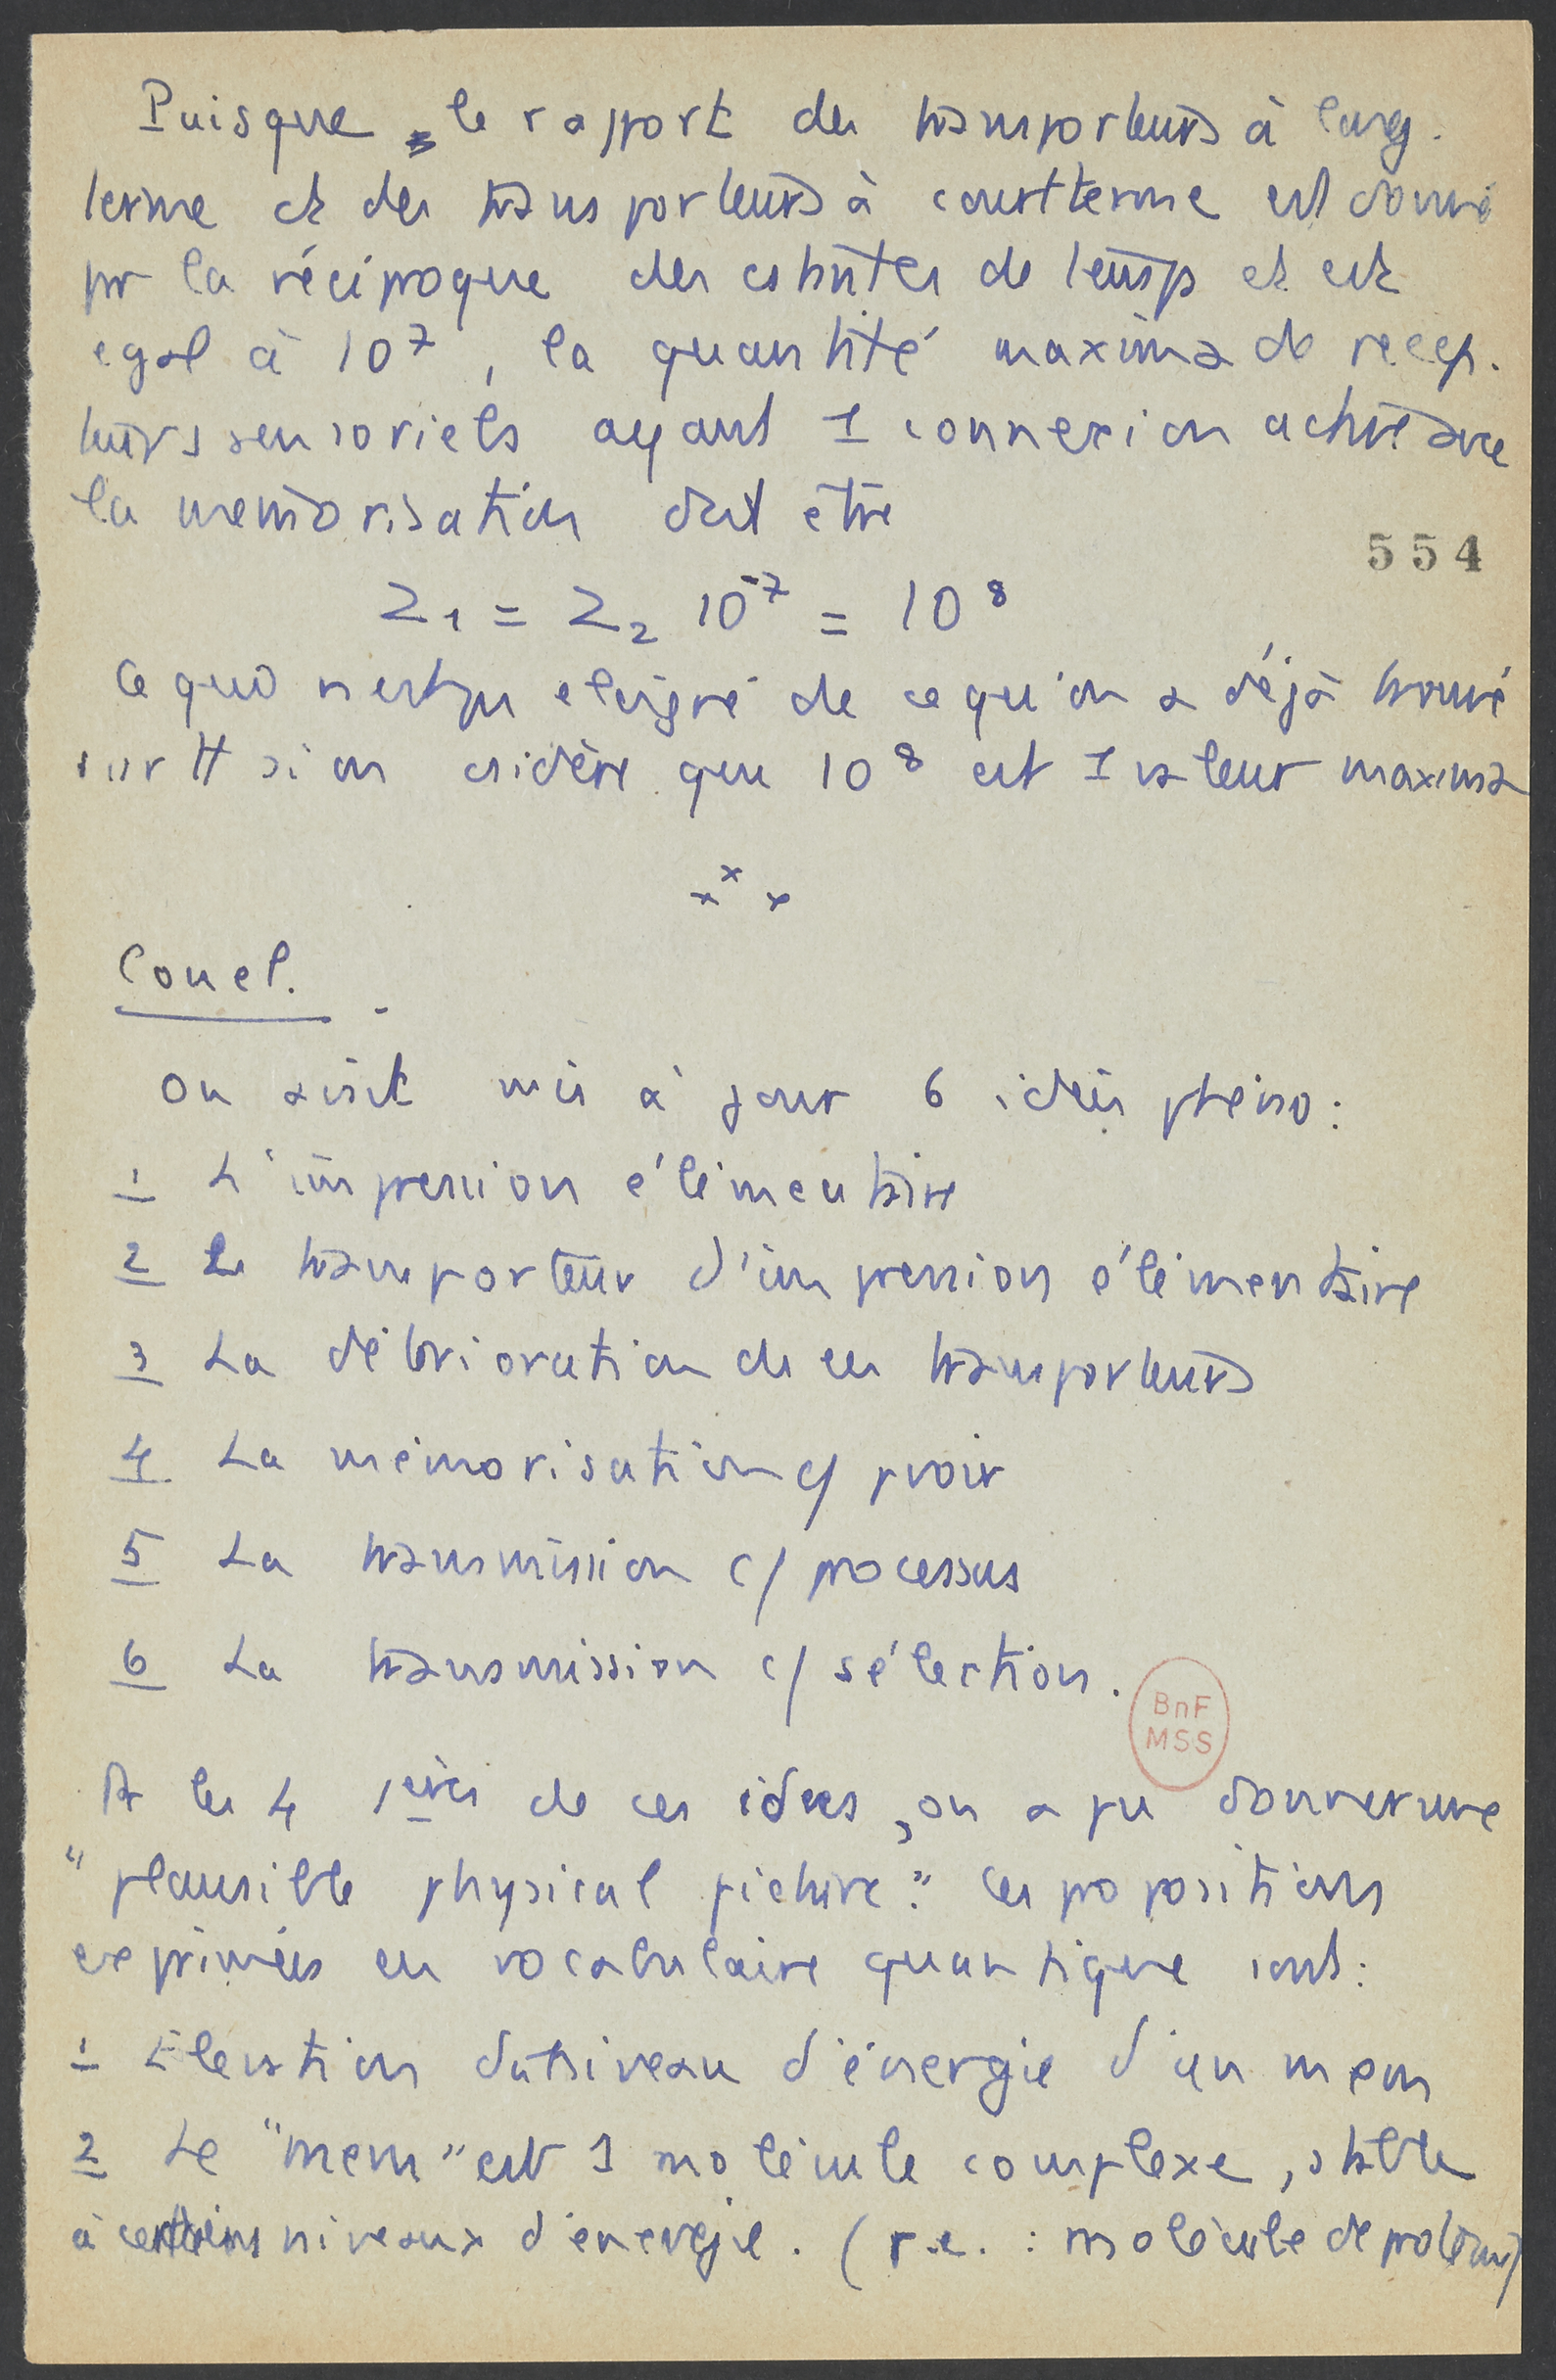 Puisque le rapport des transporteurs à long-
terme et des transporteurs à court terme est donné
pr la réciproque des cstntes de temps et est
egal à 10⁷, la quantité maxima de récep-
teurs sensoriels ayant 1 connexion active avec
la mémorisation doit être
554
Z₁ = Z₂ 10⁻⁷ = 10⁸
Ce qui n'est pas eloigné de ce qu'on a déjà trouvé
si on csidère que 10⁸ est 1 valeur maxima
x x x
Concl.
On avait mis à jour 6 idées phéno:
1 L'impression élémentaire
2 Le transporteur d'impression élémentaire
3 La détérioration de ces transporteurs
4 La mémorisation c/
5 La transmission c/ processus
6 La transmission c/ sélection.
BnF
MSS
A les 4 1ères de ces idées, on a pu donner une
"plausible physical picture". Ces propositions
exprimées en vocabulaire quantique sont:
1 Elevation du niveau d'énergie d'un mem
2 Le "mem" est 1 molécule complexe, stable
à certains niveaux d'energie. (p.e. : molécule de protéine)